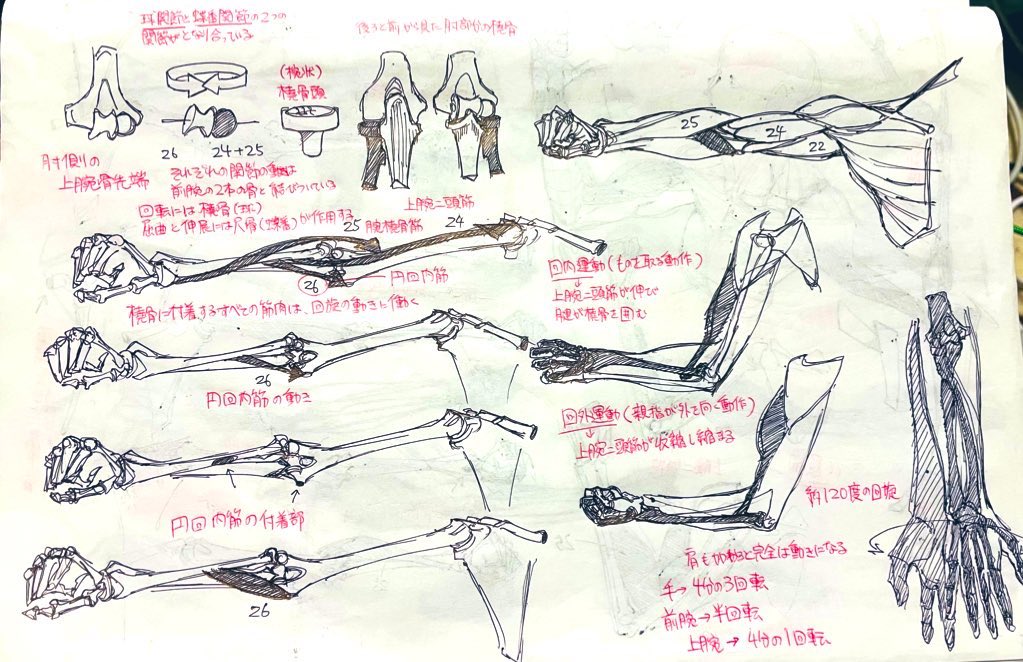 球関節と蝶番関節の2つの
関節がとなり合っている
後ろと前から見た肘部分の橈骨
(椀状)
橈骨頭
26
24+25
肘側の
上腕骨先端
それぞれの関節の動きは
前腕の2本の骨と結びついている
回転には橈骨(球)
屈曲と伸展には尺骨(蝶番)が作用する
25
24
22
上腕二頭筋
25 腕橈骨筋
24
26
円回内筋
橈骨に付着するすべての筋肉は、回旋の動きに働く
26
円回内筋の動き
円回内筋の付着部
26
回内運動(ものを取る動作)
↓
上腕二頭筋が伸び
腱が橈骨を囲む
回外運動(親指が外を向く動作)
↓
上腕二頭筋が収縮し縮まる
約120度の回旋
肩も加わると完全な動きになる
手→4分の3回転
前腕→半回転
上腕→4分の1回転